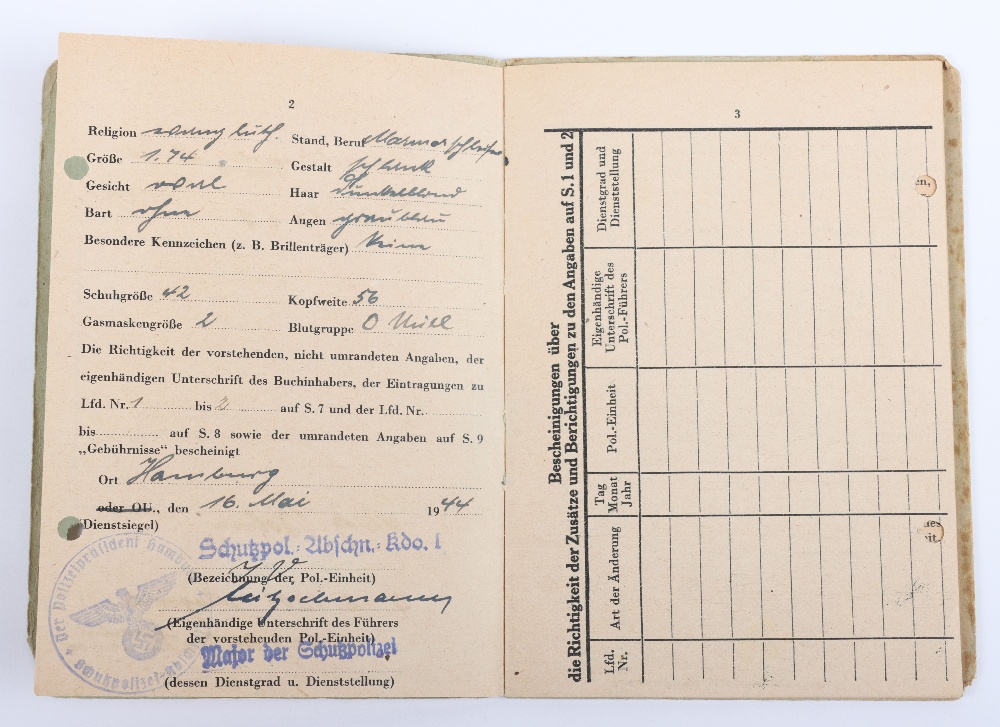 2
Religion evang. luth. Stand, Beruf Marmorschleifer
Größe 1.74 Gestalt schlank
Gesicht oval Haar dunkelblond
Bart ohne Augen graublau
Besondere Kennzeichen (z. B. Brillenträger) keine
Schuhgröße 42 Kopfweite 56
Gasmaskengröße 2 Blutgruppe O Null
Die Richtigkeit der vorstehenden, nicht umrandeten Angaben, der
eigenhändigen Unterschrift des Buchinhabers, der Eintragungen zu
Lfd. Nr. 1 bis 2 auf S. 7 und der Lfd. Nr.
bis auf S. 8 sowie der umrandeten Angaben auf S. 9
„Gebührnisse“ bescheinigt
Ort Hamburg
oder OU., den 16. Mai 1944
(Dienstsiegel)
Schutzpol.-Abschn.-Kdo. 1
(Bezeichnung der Pol.-Einheit)
I.V.
(Eigenhändige Unterschrift des Führers
der vorstehenden Pol.-Einheit)
Major der Schutzpolizei
(dessen Dienstgrad u. Dienststellung)
Der Polizeipräsident Hamburg
Schutzpolizei
3
Bescheinigungen über
die Richtigkeit der Zusätze und Berichtigungen zu den Angaben auf S. 1 und 2
Lfd. Nr.
Art der Änderung
Tag
Monat
Jahr
Pol.-Einheit
Eigenhändige
Unterschrift des
Pol.-Führers
Dienstgrad und
Dienststellung
en,